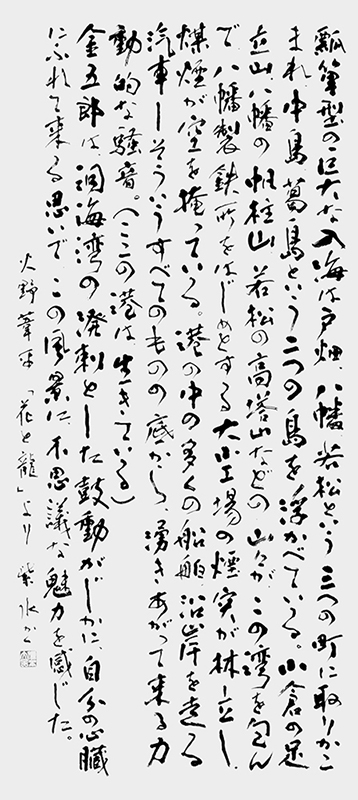 瓢箪型の巨大な入海は戸畑、八幡、若松という三つの町に取りかこ
まれ、中島、葛島という二つの島を浮かべている。小倉の足
立山、八幡の帆柱山、若松の高塔山などの山々が、この湾を包ん
で、八幡製鉄所をはじめとする大小工場の煙突が林立し、
煤煙が空を掩っている。港の中の多くの船舶、沿岸を走る
汽車―そういうすべてのものの底から、湧きあがって来る力
動的な騒音。(ここの港は生きている)
金五郎は、洞海湾の溌剌とした鼓動がじかに、自分の心臓
にふれて来る思いで、この風景に不思議な魅力を感じた。
火野葦平「花と龍」より 紫水かく